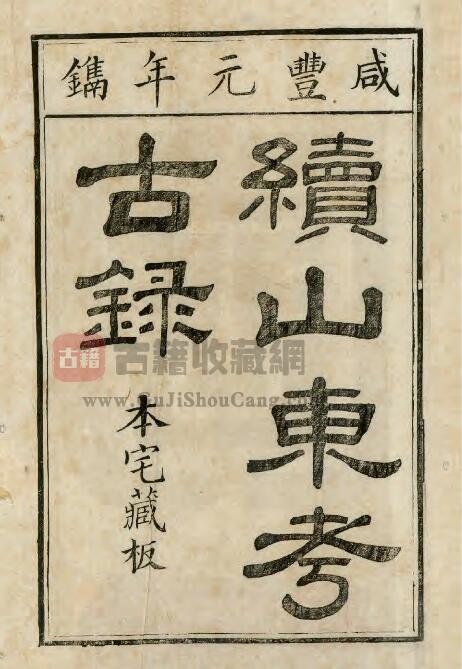 咸豐元年鐫
續山東考
古録
本宅藏板
古籍
古籍收藏網
www.GuJiShouCang.com